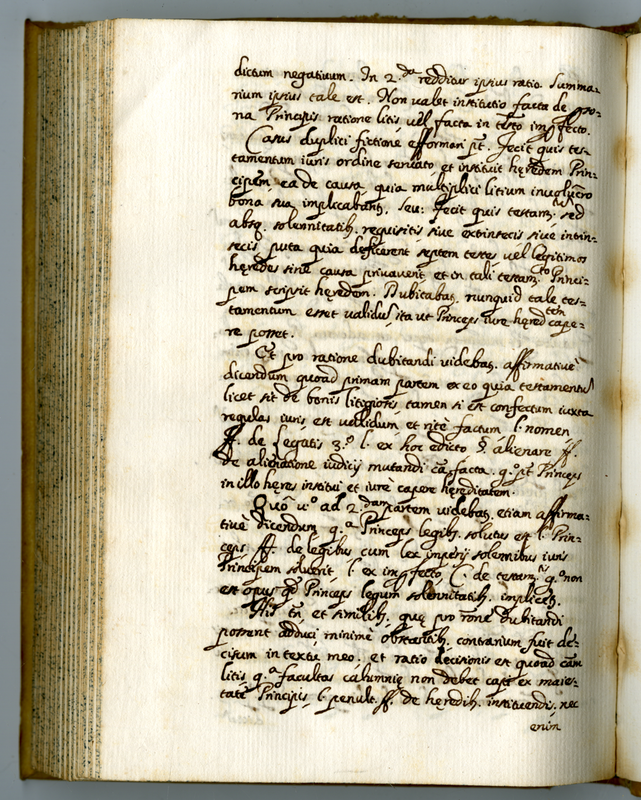 dictum negativum. In 2.da redditur ipsius ratio. Summa=
rium ipsius tale est. Non valet institutio facta de pso=
na Principis ratione litis vel facta in testo imperfecto.
Casus duplici fictione efformari pt. Fecit quis tes=
tamentum iuris ordine servato, et instituit hęredem Prin=
cipem, ea de causa, quia multiplici litium involucro
bona sua implicabant.r, seu: fecit quis testam.tum sed
absq. solennitatib. requisitis sive extinsecis sive intrin=
secis, puta quia deficerent septem testes vel legitimos
hęredes sine causa privaverit et in tali testam.to Princi=
pem scripsit hęredem. Dubitabat.r nunquid tale tes=
tamentum esset validus, ita ut Princeps iure hęred.tem cape=
re posset.
Et pro ratione dubitandi videbat.r affirmative
dicendum quoad primam partem ex eo quia testamentū
licet sit de bonis litigiosis, tamen si est confectum iuxta
regulas iuris est vallidum et rite factum l. nomen
ff. de legatis 3.º l. ex hoc edicto §. alienare ff.
de alienatione iudicij mutandi cā facta. g.º pt Princeps
in illo hęres institui et iure capere hęreditatem.
Quō v.º ad 2.dam partem videbat.r etiam affirma=
tive dicendum q.a Princeps legib. solutus est l. Prin=
ceps ff. de legibus cum lex imperij solennibus iuris
Principem solverit, l. ex imperfecto, C. de testam.tis g.º non
est opus qd Princeps legum solennitatib. implicet.r
His tn, et similib. quę pro rōne dubitandi
possent adduci minime obstantib. contrarium fuit de=
cisum in textu meo, et ratio decisionis est quoad cām
litis q.a facultas calumnię non debet capi ex maies=
tate Principis, l. penult. ff. de hęredib. instituendis, nec
enim